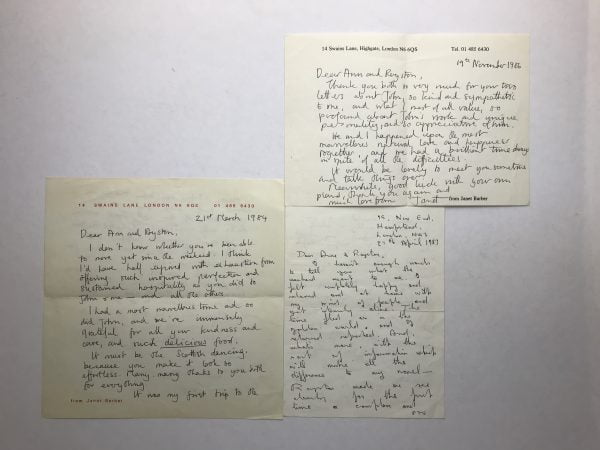 14 SWAINS LANE LONDON N6 6QS 01 485 6430
21st March 1984
Dear Ann and Royston,
I don't know whether you've been able
to move yet since the weekend. I think
I'd have half expired with exhaustion from
offering such inspired perfection and
sustained hospitality as you did to
John & me — and all the others.
I had a most marvellous time and so
did John, and we're immensely
grateful for all your kindness and
care, and such delicious food.
It must be the Scottish dancing,
because you make it look so
effortless. Many, many thanks to you both
for everything.
It was my first trip to the
from Janet Barber
14 Swains Lane, Highgate, London N6 6QS Tel. 01 485 6430
19th November 1986
Dear Ann and Royston,
Thank you both so very much for your two
letters about John, so kind and sympathetic
to me, and what I most of all value, so
profound about John's work and unique
personality, and so appreciative of him.
He and I happened upon the most
marvellous natural love and happiness
together, and we had a brilliant time
in spite of all the difficulties.
It would be lovely to meet you sometime
and talk things over.
Meanwhile, good luck with your own
plans, thank you again and
much love from Janet
from Janet Barber
New End,
Hampstead,
London, NW3
April 1987
Dear Anne & Royston,
I haven't enough words
to tell you what the
weekend meant to me. I
felt helpfully happy and
relaxed and at home with
my kind of people and
time spent in the
golden world, and
returned refreshed. And,
what's more, with the
sort of information which
will make all the
difference to my novel —
Royston made me see
clearly for the first
time a complex and